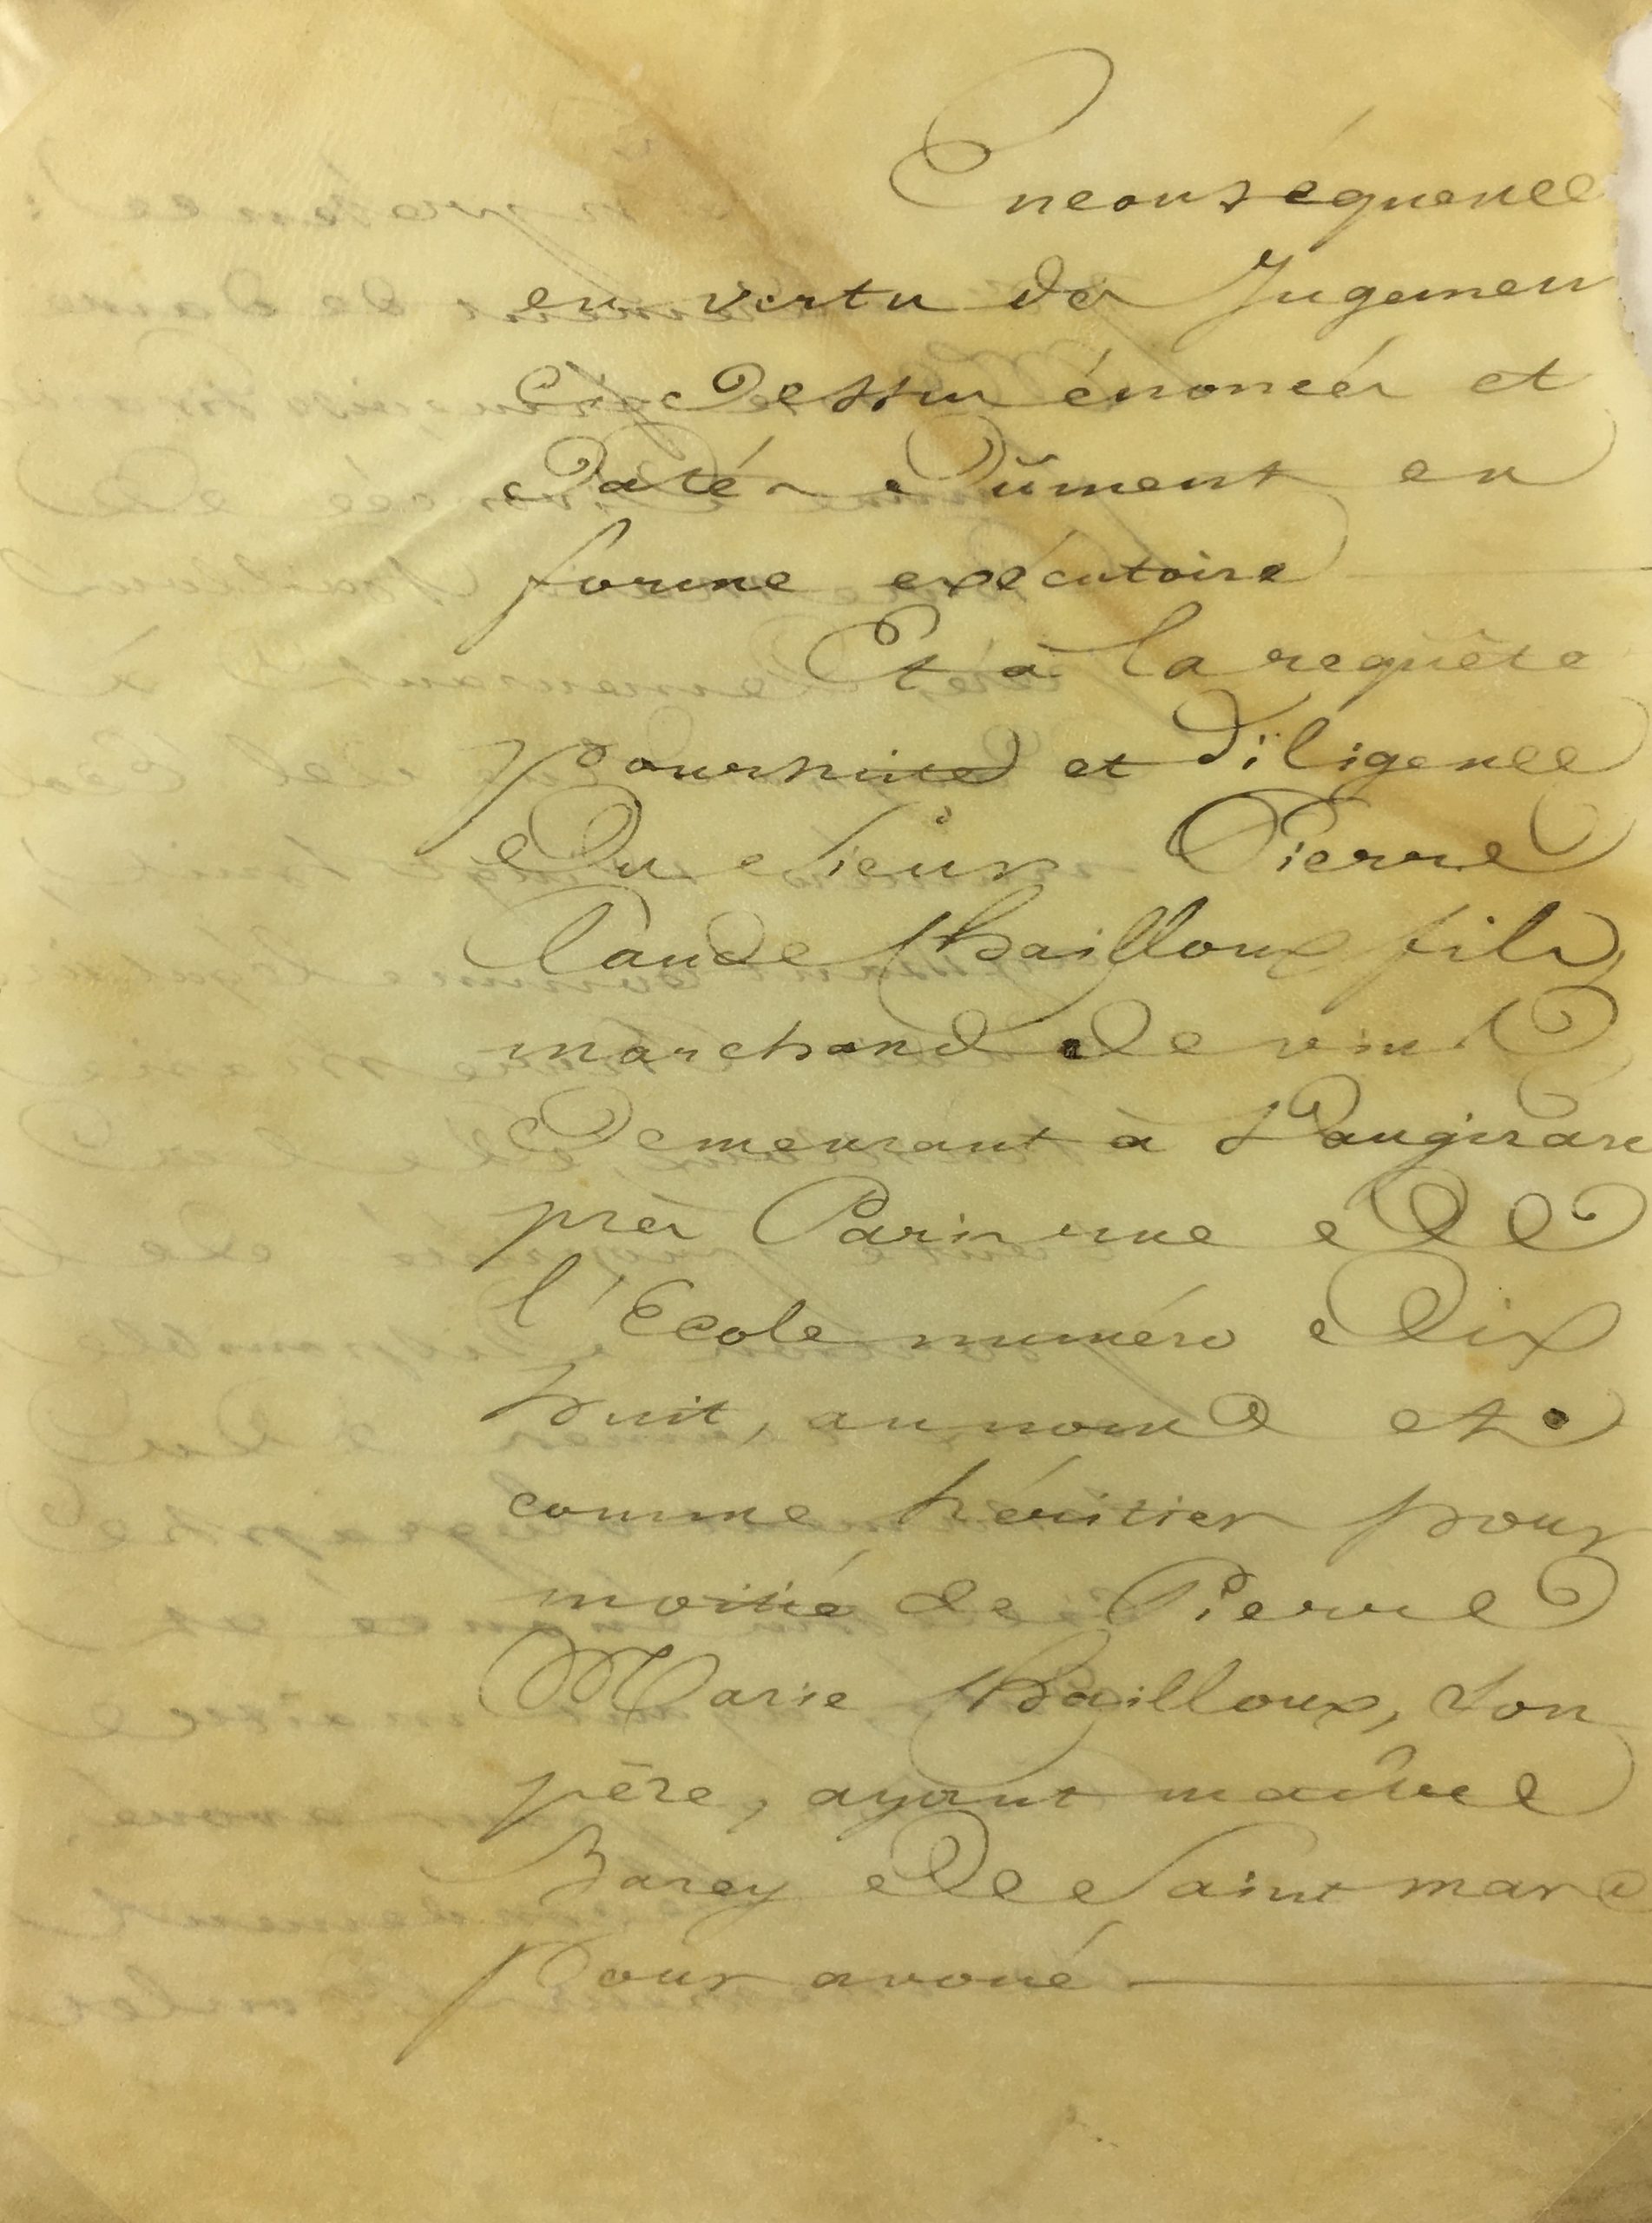 Enconséquence
en vertu des Jugemen
Ci-Dessus énoncés et
Datés Dûment en
forme exécutoire
Et à la requête
poursuite et Diligence
Du Sieur Pierre
Claude Chailloux fils
marchand De vins
Demeurant à Vaugirard
près Paris rue De
l'Ecole numéro Dix
huit, au nom et
comme héritier pour
moitié de Pierre
Marie Chailloux, Son
père, ayant maître
De Saint mard
pour avoué